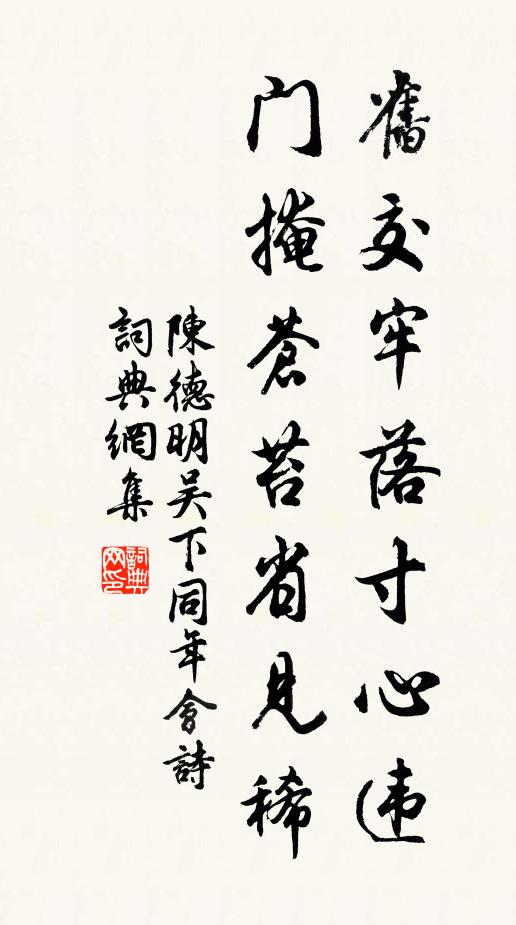 舊交牢落寸心违
門掩蒼苔省見稀
陳德明吴下同年會詩
詞典網集
詞典網印